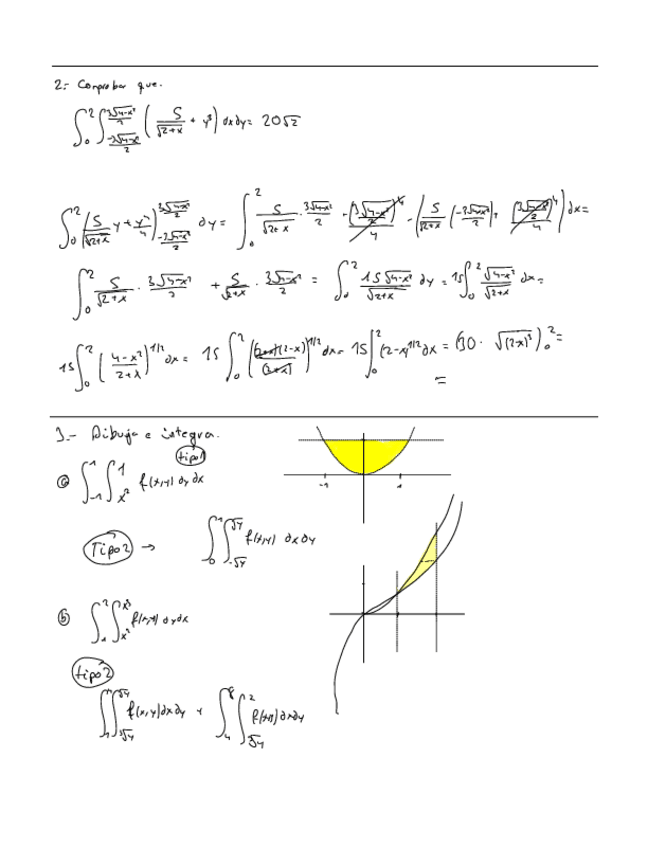 2.- Comprobar que.
∫₀² ∫_{-3√(4-x²)/2}^{3√(4-x²)/2} (5/√(2+x) + y³) dxdy = 20√2
∫₀² (5/√(2+x) y + y⁴/4)_{-3√(4-x²)/2}^{3√(4-x²)/2} dy = ∫₀² 5/√(2+x) · 3√(4-x²)/2 + (3√(4-x²)/2)⁴/4 - (5/√(2+x) (-3√(4-x²)/2) + (3√(4-x²)/2)⁴/4) dx =
∫₀² 5/√(2+x) · 3√(4-x²)/2 + 5/√(2+x) · 3√(4-x²)/2 = ∫₀² 15√(4-x²)/√(2+x) dy = 15 ∫₀² √(4-x²)/√(2+x) dx =
15 ∫₀² ((4-x²)/(2+x))^{1/2} dx = 15 ∫₀² ((2+x)(2-x)/(2+x))^{1/2} dx = 15 ∫₀² (2-x)^{1/2} dx = (30 · √(2-x)³)₀² =
=
3.- Dibuja e integra.
tipo 1
ⓐ ∫_{-1}^{1} ∫_{x²}^{1} f(x,y) dy dx
-1 1
Tipo 2 → ∫₀¹ ∫_{-√y}^{√y} f(x,y) dx dy
ⓑ ∫₁² ∫_{x²}^{x³} f(x,y) dy dx
tipo 2
∫₁⁴ ∫_{∛y}^{√y} f(x,y) dx dy + ∫₄⁸ ∫_{∛y}^{2} f(x,y) dx dy